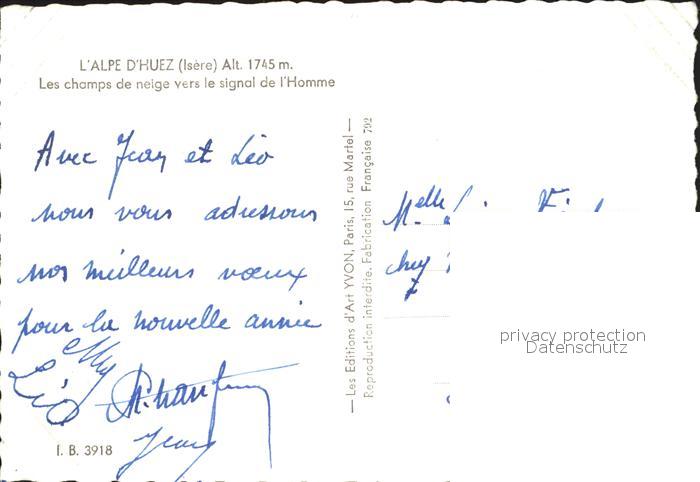 L'ALPE D'HUEZ (Isère) Alt. 1745 m.
Les champs de neige vers le signal de l'Homme
Avec Jean et Léo
nous vous adressons
nos meilleurs vœux
pour la nouvelle année
Léo
Jean
I. B. 3918
— Les Editions d'Art YVON, Paris, 15, rue Martel —
Reproduction interdite. Fabrication Française 792
Melle
chez
privacy protection
Datenschutz